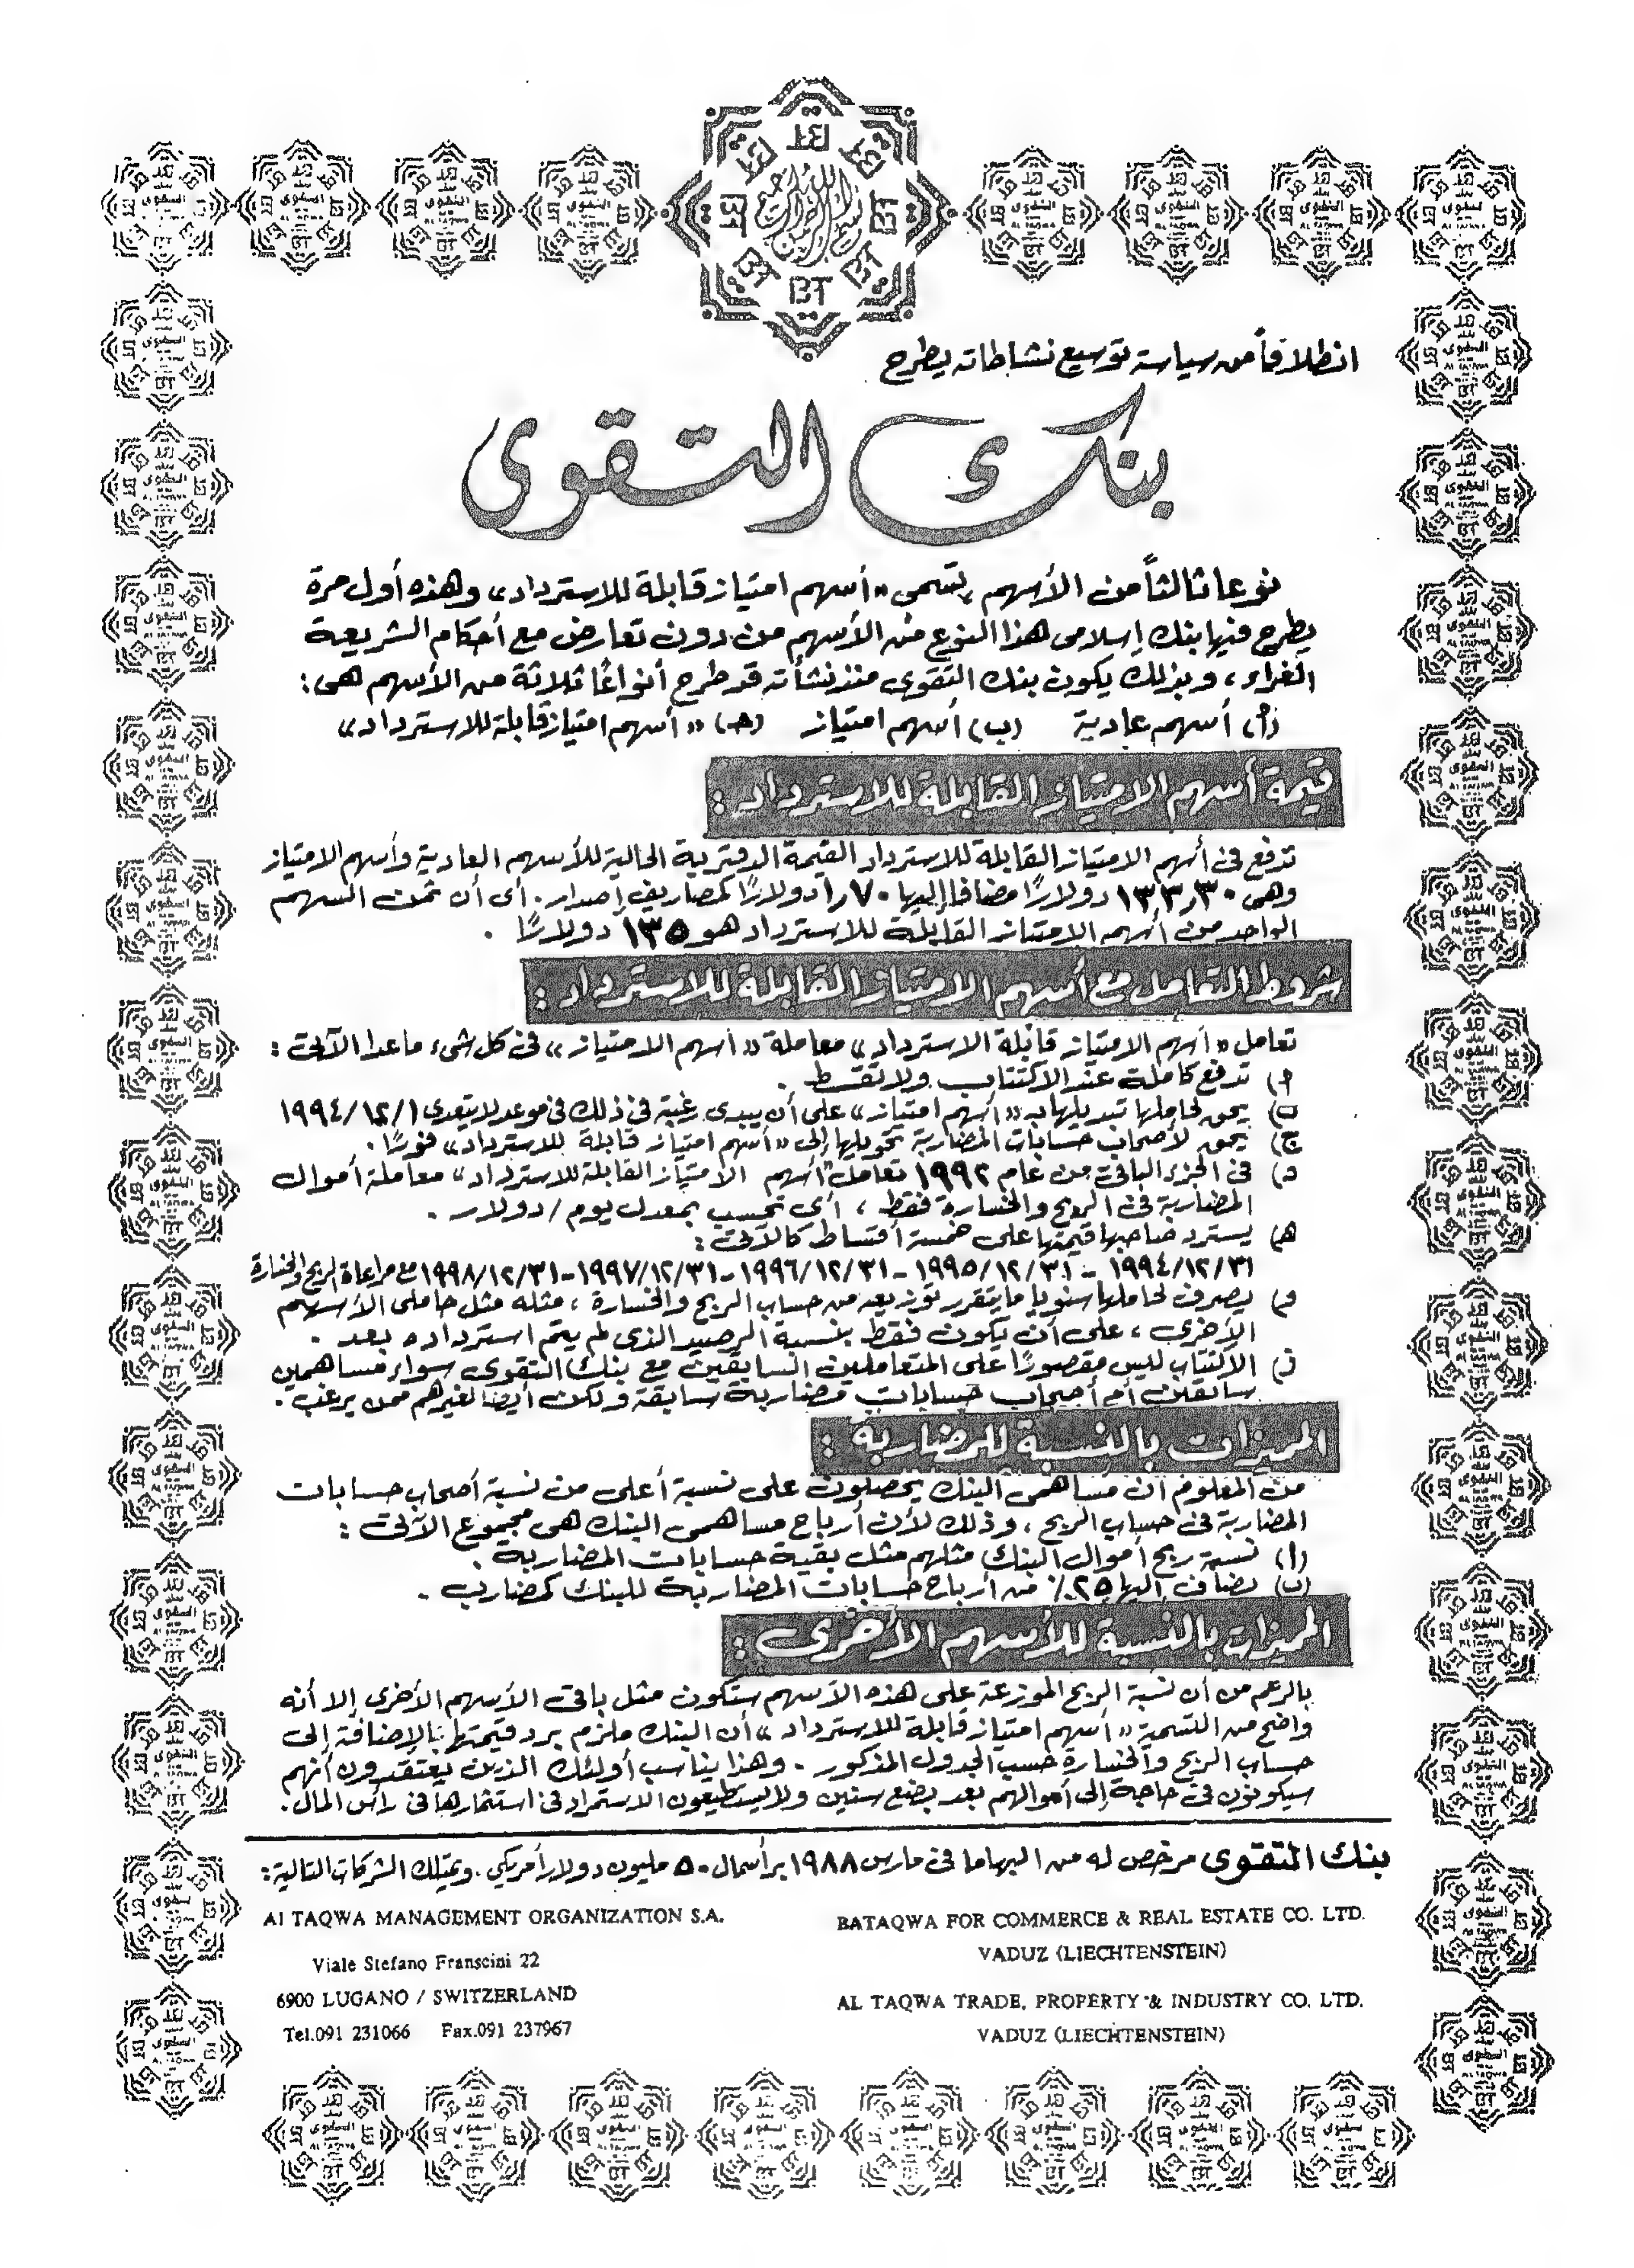 بسم الله الرحمن الرحيم
انطلاقاً من سياسة توسيع نشاطاته يطرح
بنك التقوى
نوعا ثالثاً من الأسهم يسمى «أسهم امتياز قابلة للاسترداد» وهذه أول مرة
يطرح فيها بنك إسلامى هذا النوع من الأسهم من دون تعارض مع أحكام الشريعة
الغراء، وبذلك يكون بنك التقوى منذ نشأته قد طرح أنواعًا ثلاثة من الأسهم هى:
(أ) أسهم عادية (ب) أسهم امتياز (جـ) «أسهم امتياز قابلة للاسترداد»
قيمة أسهم الامتياز القابلة للاسترداد:
تدفع فى أسهم الامتياز القابلة للاسترداد القيمة الدفترية الحالية للأسهم العادية وأسهم الامتياز
وهى ١٣٣٫٣٠ دولارًا مضافا إليها ١٫٧٠ دولارًا كمصاريف إصدار. أى أن ثمن السهم
الواحد من أسهم الامتياز القابلة للاسترداد هو ١٣٥ دولارًا.
شروط التعامل مع أسهم الامتياز القابلة للاسترداد:
تعامل «أسهم الامتياز قابلة الاسترداد» معاملة «أسهم الامتياز» فى كل شىء ماعدا الآتى:
أ) تدفع كاملة عند الاكتتاب ولا تقسط.
ب) يحق لحاملها تبديلها بـ «أسهم امتياز» على أن يبدى رغبة فى ذلك فى موعد لا يتعدى ١٩٩٤/١٢/١
ج) يحق لأصحاب حسابات المضاربة تحويلها إلى «أسهم امتياز قابلة للاسترداد» فورًا.
د) فى الجزء الباقى من عام ١٩٩٢ تعامل «أسهم الامتياز القابلة للاسترداد» معاملة أموال
المضاربة فى الربح والخسارة فقط، أى تحسب بمعدل يوم/دولار.
هـ) يسترد صاحبها قيمتها على خمسة أقساط كالآتى:
١٩٩٤/١٢/٣١ - ١٩٩٥/١٢/٣١ - ١٩٩٦/١٢/٣١ - ١٩٩٧/١٢/٣١ - ١٩٩٨/١٢/٣١ مع مراعاة الربح والخسارة
و) يصرف لحاملها سنويا ما يتقرر توزيعه من حساب الربح والخسارة، مثله مثل حاملى الأسهم
الأخرى، على أن يكون فقط بنسبة الرصيد الذى لم يتم استرداده بعد.
ز) الاكتتاب ليس مقصورًا على المتعاملين السابقين مع بنك التقوى سواء مساهمين
سابقين أم أصحاب حسابات مضاربة سابقة ولكن أيضا لغيرهم ممن يرغب.
المميزات بالنسبة للمضاربة:
من المعلوم أن مساهمى البنك يحصلون على نسبة أعلى من نسبة أصحاب حسابات
المضاربة فى حساب الربح، وذلك لأن أرباح مساهمى البنك هى مجموع الآتى:
(أ) نسبة ربح أموال البنك مثلهم مثل بقية حسابات المضاربة.
(ب) يضاف إليها ٢٥٪ من أرباح حسابات المضاربة للبنك كمضارب.
المميزات بالنسبة للأسهم الأخرى:
بالرغم من أن نسبة الربح الموزعة على هذه الأسهم ستكون مثل باقى الأسهم الأخرى إلا أنه
واضح من التسمية «أسهم امتياز قابلة للاسترداد» أن البنك ملزم برد قيمتها بالإضافة إلى
حساب الربح والخسارة حسب الجدول المذكور. وهذا يناسب أولئك الذين يعتقدون أنهم
سيكونون فى حاجة إلى أموالهم بعد بضع سنين ولا يستطيعون الاستمرار فى استثمارها فى رأس المال.
بنك التقوى مرخص له من البهاما فى مارس ١٩٨٨ برأسمال ٥٠ مليون دولار أمريكي. ويمتلك الشركات التالية:
Al TAQWA MANAGEMENT ORGANIZATION S.A.
Viale Stefano Franscini 22
6900 LUGANO / SWITZERLAND
Tel.091 231066 Fax.091 237967
BATAQWA FOR COMMERCE & REAL ESTATE CO. LTD.
VADUZ (LIECHTENSTEIN)
AL TAQWA TRADE, PROPERTY & INDUSTRY CO. LTD.
VADUZ (LIECHTENSTEIN)